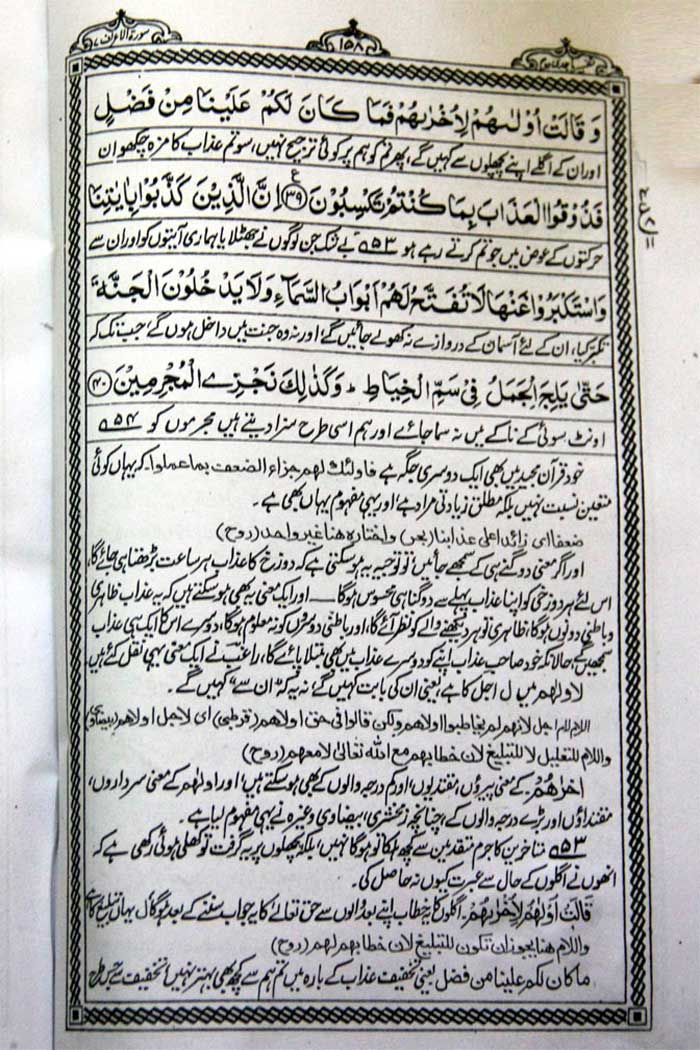 سورة الاعراف ٧
١٥٨
تفسیر ماجدی جلد دوم
وَ قَالَتْ اُوْلٰىهُمْ لِاُخْرٰىهُمْ فَمَا كَانَ لَكُمْ عَلَيْنَا مِنْ فَضْلٍ
اور ان کے اگلے اپنے پچھلوں سے کہیں گے، پھر تم کو ہم پر کوئی ترجیح نہیں، سو تم عذاب کا مزہ چکھو ان
فَذُوْقُوا الْعَذَابَ بِمَا كُنْتُمْ تَكْسِبُوْنَ ﴿٣٩﴾ ع اِنَّ الَّذِيْنَ كَذَّبُوْا بِاٰيٰتِنَا
حرکتوں کے عوض میں جو تم کرتے رہے ہو ٥٣ بے شک جن لوگوں نے جھٹلایا ہماری آیتوں کو اور ان سے
وَاسْتَكْبَرُوْا عَنْهَا لَا تُفَتَّحُ لَهُمْ اَبْوَابُ السَّمَآءِ وَلَا يَدْخُلُوْنَ الْجَنَّةَ
تکبّر کیا، ان کے لئے آسمان کے دروازے نہ کھولے جائیں گے، اور نہ وہ جنت میں داخل ہوں گے، جب تک کہ
حَتّٰى يَلِجَ الْجَمَلُ فِيْ سَمِّ الْخِيَاطِ ؕ وَكَذٰلِكَ نَجْزِي الْمُجْرِمِيْنَ ﴿٤٠﴾
اونٹ سوئی کے ناکے میں نہ سما جائے اور ہم اسی طرح سزا دیتے ہیں مجرموں کو ٥٤
خود قرآن مجید میں بھی ایک دوسری جگہ ہے فاولئك لهم جزاء الضعف بما عملوا۔ کہ یہاں کوئی
متعین نسبت نہیں بلکہ مطلق زیادتی مراد ہے، اور یہی مفہوم یہاں بھی ہے۔
ضعفا ای زائدا علی عذابنا (بحر) واختاره هنا غیر واحد (روح)
اور اگر معنی دو گنے ہی کے سمجھے جائیں، تو توجیہ یہ ہو سکتی ہے کہ دوزخ کا عذاب ہر ساعت بڑھتا ہی جائے گا،
اس لئے ہر دوزخی کو اپنا عذاب پہلے سے دو گنا ہی محسوس ہوگا ــــ اور ایک معنی یہ بھی ہو سکتے ہیں کہ یہ عذاب ظاہری
و باطنی دونوں ہوگا، ظاہری تو ہر دیکھنے والے کو نظر آئے گا، اور باطنی دوسروں کو نہ معلوم ہوگا، دوسرے اس کا ایک ہی عذاب
سمجھیں گے، حالانکہ خود صاحب عذاب اپنے کو دوسرے عذاب میں بھی مبتلا پائے گا، راغبؒ نے ایک معنی یہی نقل کئے ہیں۔
لاولٰهم میں ل اجل کا ہے، یعنی ان کی بابت کہیں گے، نہ یہ کہ "ان سے" کہیں گے۔
اللام لام اجل لانهم لم یخاطبوا اولاهم ولکن قالوا فی حق اولاهم (قرطبی) ای لاجل اولاهم (بیضاوی)
واللام للتعلیل لا للتبلیغ لان خطابهم مع الله تعالیٰ لا معهم (روح)
اخرٰهُمْ۔ کے معنی پیروؤں، مقتدیوں، اور کم درجہ والوں کے بھی ہو سکتے ہیں، اور اولٰهم کے معنی سرداروں،
مقتداؤں اور بڑے درجہ والوں کے، چنانچہ زمخشری، بیضاوی وغیرہ نے یہی مفہوم لیا ہے۔
٥٣ متاخرین کا جرم متقدمین سے کچھ ہلکا تو ہوگا نہیں، بلکہ پچھلوں پر یہ گرفت تو کھلی ہوئی رکھی ہے کہ
انھوں نے اگلوں کے حال سے عبرت کیوں نہ حاصل کی۔
قَالَتْ اُوْلٰهُمْ لِاُخْرٰىهُمْ۔ اگلوں کا یہ خطاب اپنے بعد والوں سے حق تعالےٰ کا یہ جواب سننے کے بعد ہوگا ل یہاں تبلیغ کا ہے
واللام هنا یجوز ان تکون للتبلیغ لان خطابهم لهم (روح)
ما كان لكم علينا من فضل یعنی تخفیفِ عذاب کے بارہ میں تم ہم سے کچھ بھی بہتر نہیں التخفیف سے جس طرح